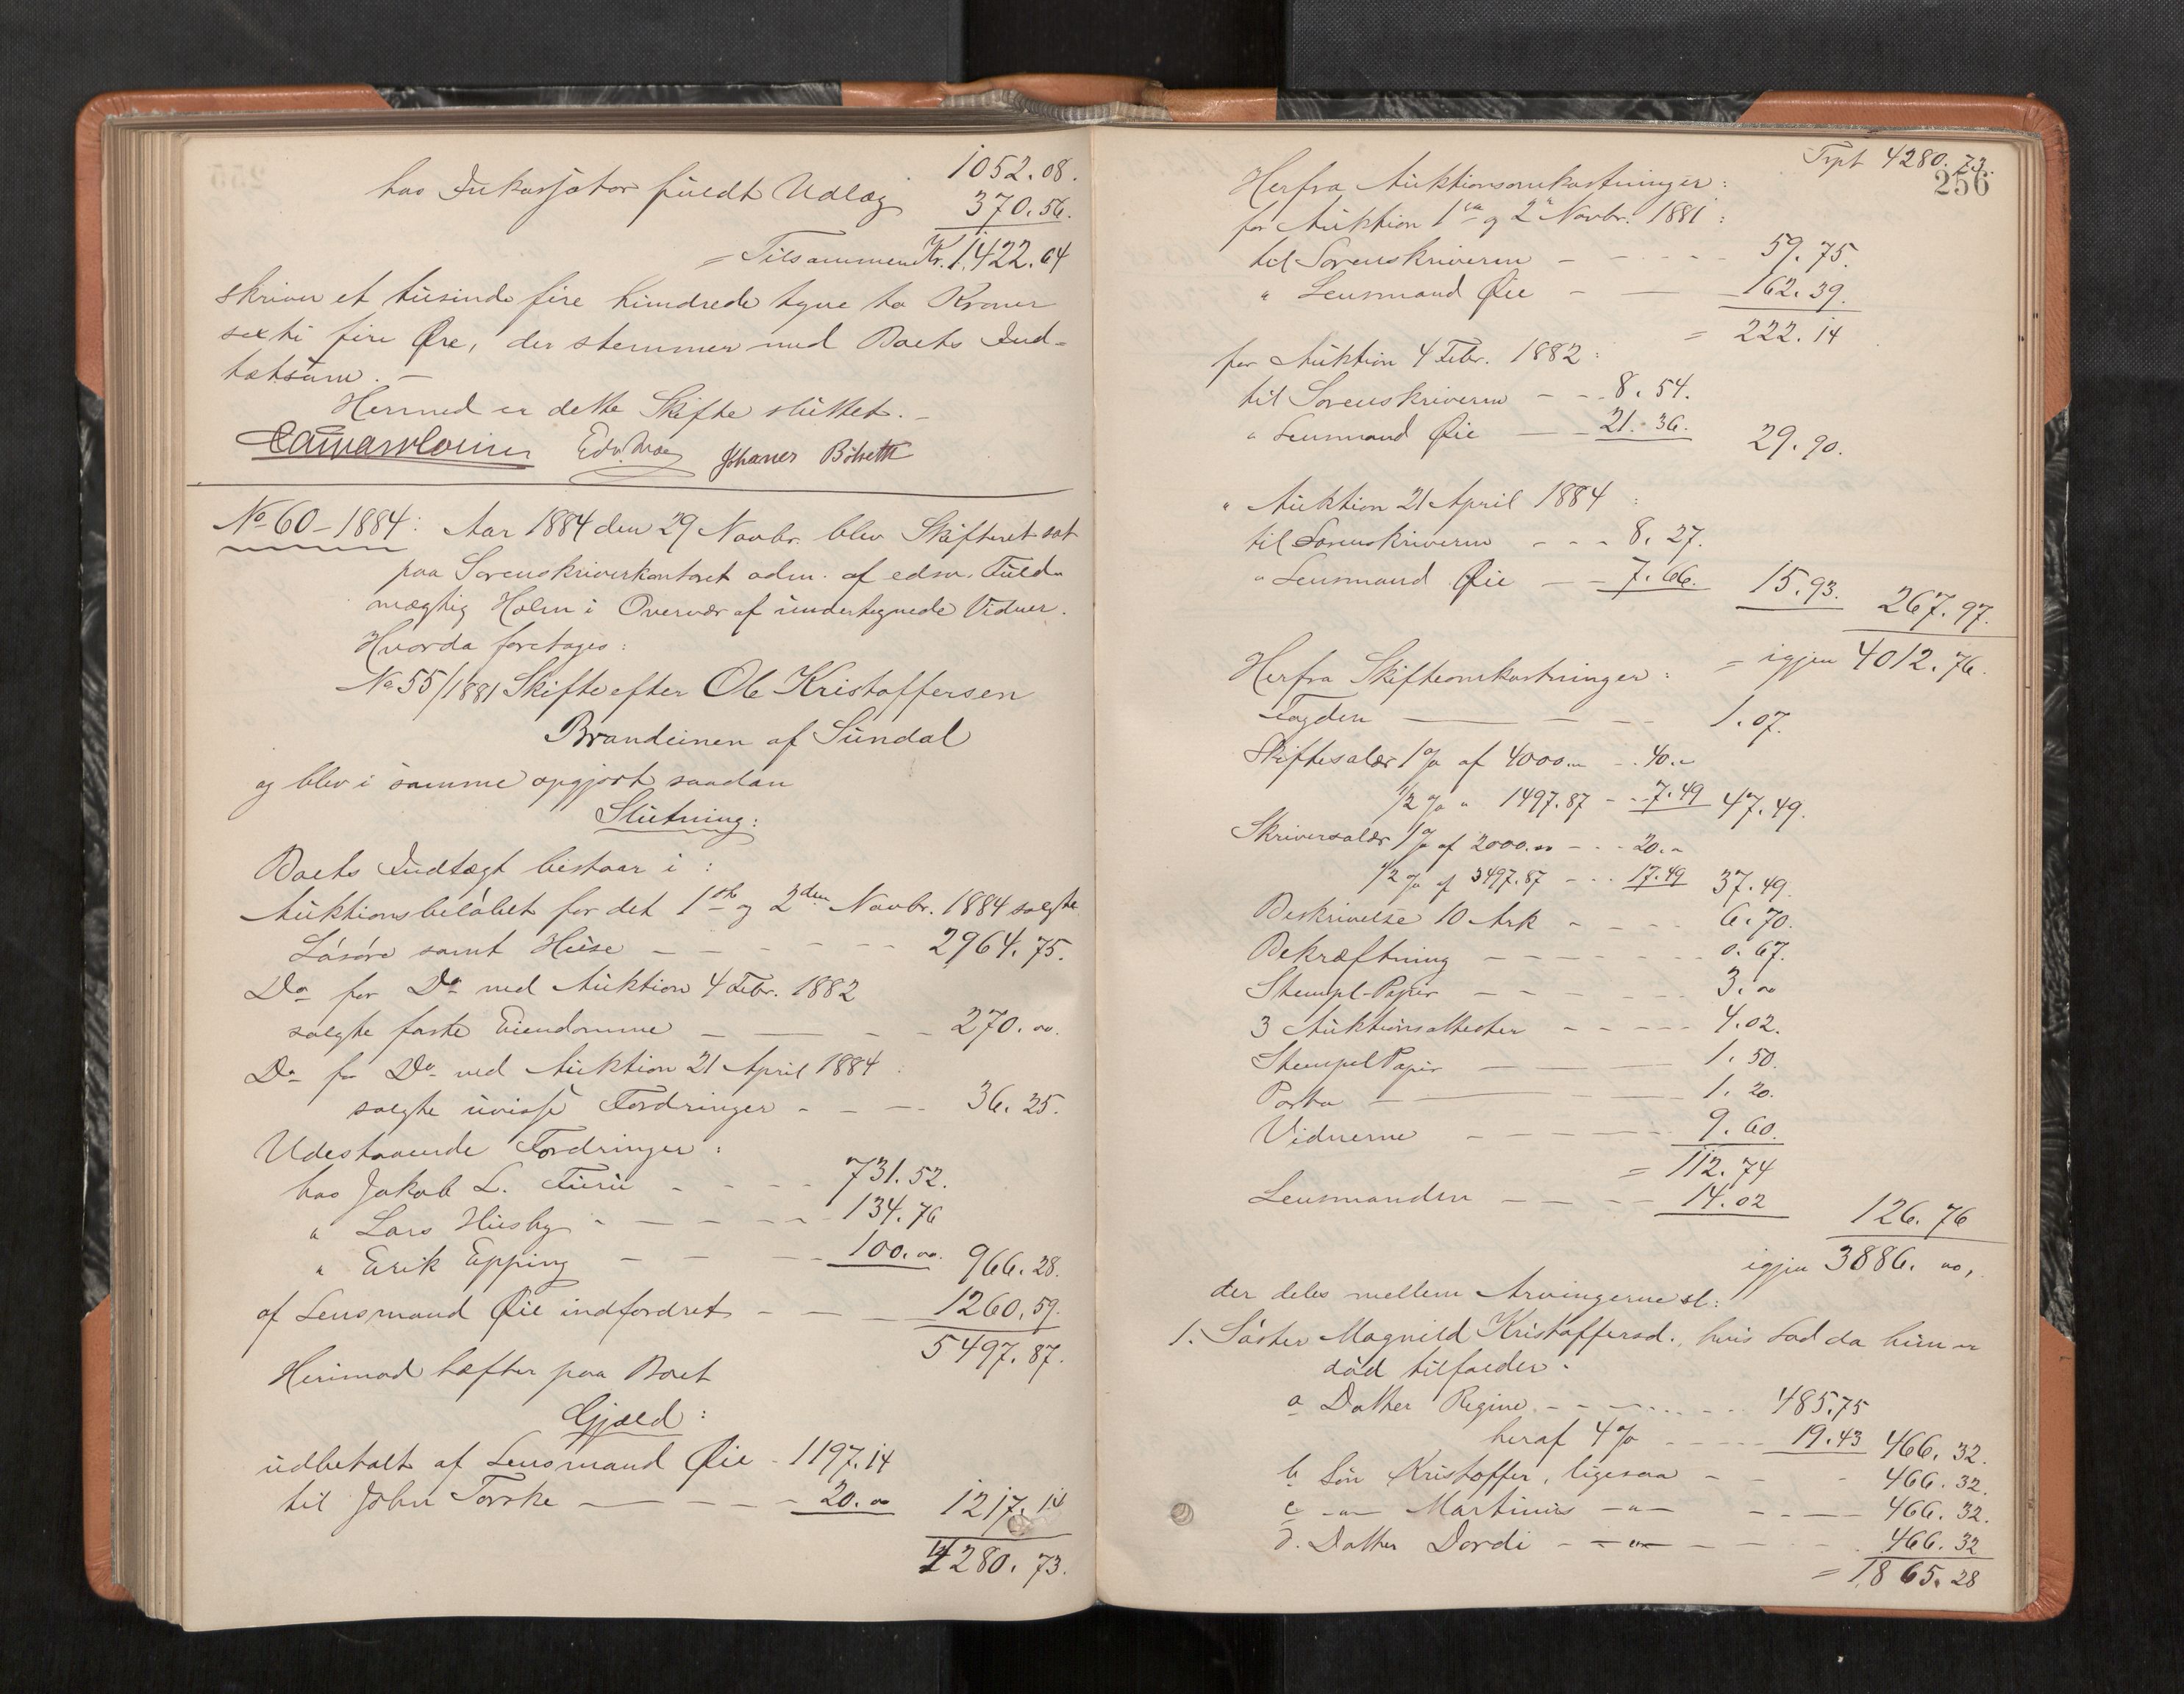 1052.08.
has Inkassator fuldt Udlæg 370.56.
= Tilsammen Kr. 1,422.64
skriver et tusinde fire hundrede tyve to Kroner
sexti fire Øre, der stemmer med Boets Ind-
tætsum. –
Hermed er dette Skifte sluttet. –
Edv. Moe Johanes Bölsett
No 60 – 1884: Aar 1884 den 29 Novbr. blev Skifteret sat
paa Sorenskriverkontoret adm. af edsv. Fuld-
mægtig Holm i Overvær af undertegnede Vidner.
Hvorda foretages:
No 55/1881 Skifte efter Ole Kristoffersen
Brandeinen af Sundal
og blev i samme opgjort saadan
Slutning:
Boets Indtægt bestaar i:
Auktionsbeløbet for det 1ste og 2den Novbr. 1884 solgte
Løsøre samt Huse – – – – – – 2964.75.
Do for Do ved Auktion 4 Febr. 1882
solgte faste Eiendomme – – – – 270.00.
Do for Do ved Auktion 21 April 1884
solgte uvisse Fordringer – – – 36.25.
Udestaaende Fordringer:
hos Jakob L. Furu – – – – 731.52.
" Lars Husby – – – – – 134.76
" Erik Epping – – – – 100.00. 966.28.
af Lensmand Øie indfordret – – – 1260.59.
5497.87.
Herimod hæfter paa Boet
Gjæld:
udbetalt af Lensmand Øie – 1197.14
til John Torske – – – – 20.00 1217.14
4280.73.
Trpt 4280.73.
256
Herfra Auktionsomkostninger:
for Auktion 1ste og 2n Novbr. 1881:
til Sorenskriveren – – – – – 59.75.
" Lensmand Øie – – – 162.39.
= 222.14
for Auktion 4 Febr. 1882:
til Sorenskriveren – – 8.54.
" Lensmand Øie – – 21.36. 29.90.
" Auktion 21 April 1884:
til Sorenskriveren – – – 8.27.
" Lensmand Øie – – 7.66. 15.93. 267.97.
= igjen 4012.76.
Herfra Skifteomkostninger:
Fogden – – – – 1.07.
Skiftesalær 1 % af 4000.00 – – 40.00
1/2 % " 1497.87 – – 7.49 47.49.
Skriversalær 1 % af 2000.00 – – – 20.00
1/2 % af 3497.87 – – – 17.49 37.49.
Beskrivelse 10 Ark – – – – 6.70.
Bekræftning – – – – – – – 0.67.
Stempl-Papir – – – – – – 3.00
3 Auktionsattester – – – – – 4.02.
StempelPapir – – – – 1.50.
Porto – – – – – 1.20.
Vidnerne – – – – – 9.60.
= 112.74
Lensmanden – – – – 14.02 126.76
igjen 3886.00,
der deles mellem Arvingerne sl:
1. Søster Magnild Kristoffersd., hvis Lod da hun er
død tilfalder:
a Datter Regine – – – – – – 485.75
heraf 4 % – – – – 19.43 466.32.
b. Søn Kristoffer, ligesaa – – – 466.32.
c –"– Martinus –"– – – – – 466.32.
d. Datter Dordi – –"– – – – – 466.32
= 1865.28